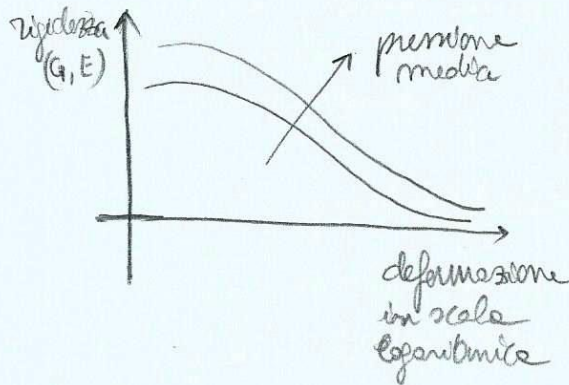 rigidezza
(G, E)
pressione
media
deformazione
in scala
logaritmica